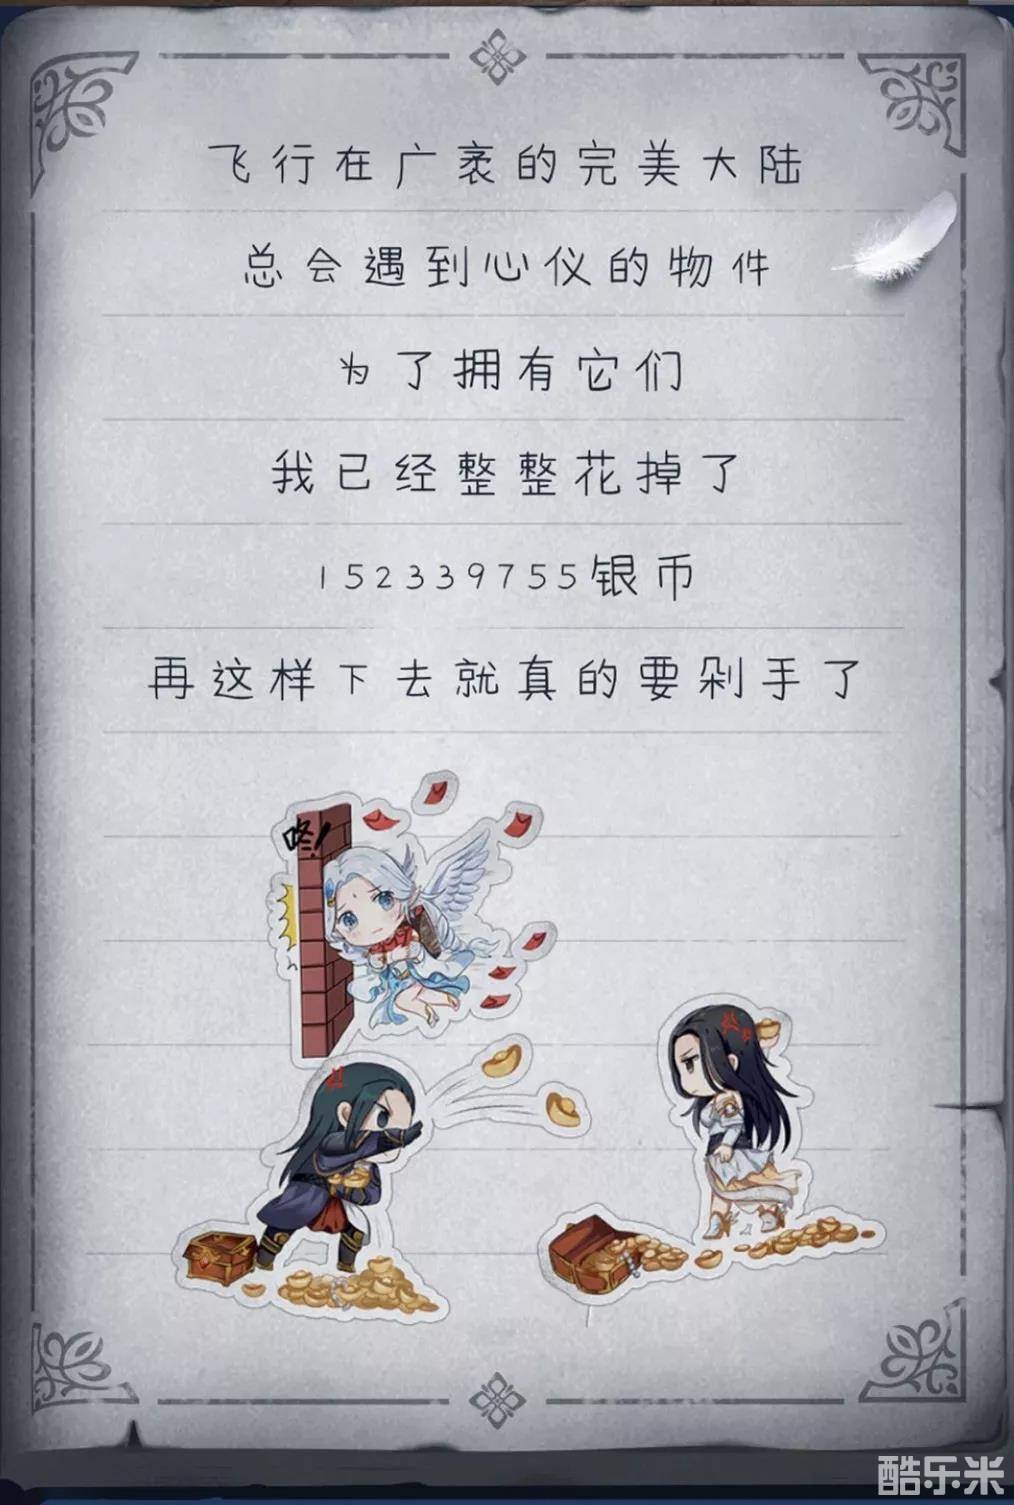 飞行在广袤的完美大陆
总会遇到心仪的物件
为了拥有它们
我已经整整花掉了
152339755银币
再这样下去就真的要剁手了
咚!
酷乐米